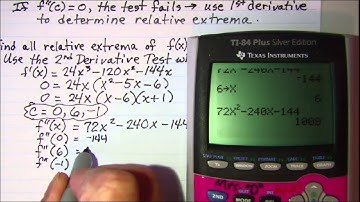 If f"(c)=0, the test fails → use 1st derivative
to determine relative extrema.
find all relative extrema of f(x)
Use the 2nd Derivative Test wh
f'(x) = 24x³-120x²-144x
0 = 24x(x²-5x-6)
0 = 24x(x-6)(x+1)
C=0, 6, -1
f"(x) = 72x²-240x-144
f"(0) = -144
f"(6) =
f"(-1)
TI-84 Plus Silver Edition
TEXAS INSTRUMENTS
72X²-240X-144
-144
6→X
6
72X²-240X-144
1008